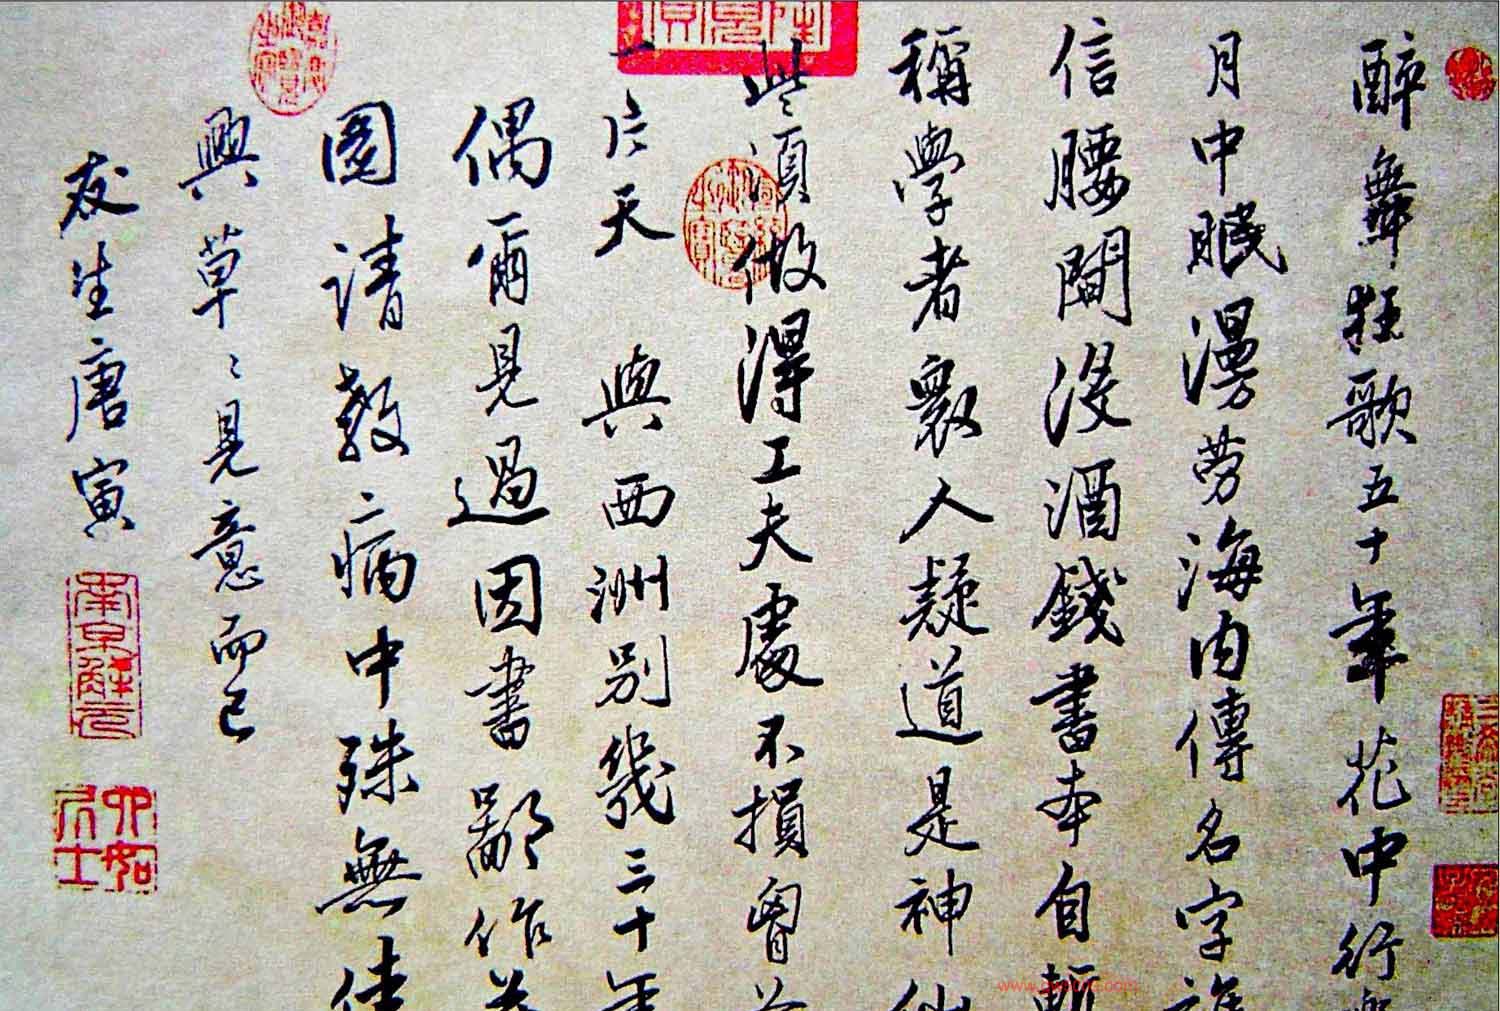 醉舞狂歌五十年花中行樂
月中眠漫勞海内傳名字誰
信腰閒沒酒錢書本自慚
稱學者衆人疑道是神仙
些須做得工夫處不損胷前
一片天 與西洲別幾三十年
偶爾見過因書鄙作并
圖請教病中殊無佳
興草〻見意而已
友生唐寅
南京解元
六如居士